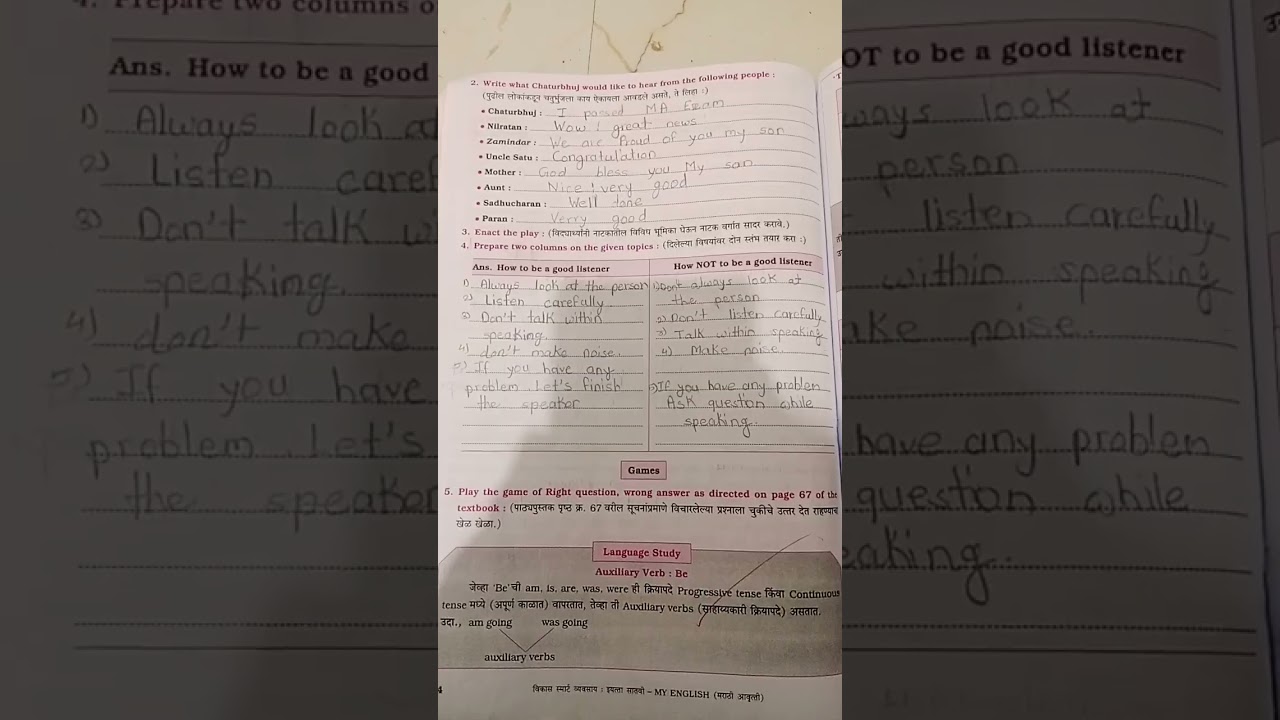 2. Write what Chaturbhuj would like to hear from the following people :
(पुढील लोकांकडून चतुर्भुजला काय ऐकायला आवडले असते, ते लिहा :)
• Chaturbhuj : I passed MA Exam
• Nilratan : Wow! great news
• Zamindar : We are Proud of you my son
• Uncle Satu : Congratulation
• Mother : God bless you My son
• Aunt : Nice! very good
• Sadhucharan : Well tone
• Paran : Verry good
3. Enact the play : (विद्यार्थ्यांनी नाटकातील विविध भूमिका घेऊन नाटक वर्गात सादर करावे.)
4. Prepare two columns on the given topics : (दिलेल्या विषयांवर दोन स्तंभ तयार करा :)
Ans. How to be a good listener
1) Always look at the person
2) Listen carefully
3) Don't talk within
speaking.
4) don't make noise.
5) If you have any
problem Let's finish
the speaker
How NOT to be a good listener
1) Don't always look at
the person
2) Don't listen carefully
3) Talk within speaking
4) Make noise
5) If you have any problem
Ask question while
speaking.
Games
5. Play the game of Right question, wrong answer as directed on page 67 of the
textbook : (पाठ्यपुस्तक पृष्ठ क्र. 67 वरील सूचनांप्रमाणे विचारलेल्या प्रश्नाला चुकीचे उत्तर देत राहण्याचा
खेळ खेळा.)
Language Study
Auxiliary Verb : Be
जेव्हा 'Be' ची am, is, are, was, were ही क्रियापदे Progressive tense किंवा Continuous
tense मध्ये (अपूर्ण काळात) वापरतात, तेव्हा ती Auxiliary verbs (साहाय्यकारी क्रियापदे) असतात.
उदा., am going was going
auxiliary verbs
4
विकास स्मार्ट व्यवसाय : इयत्ता सातवी – MY ENGLISH (मराठी आवृत्ती)